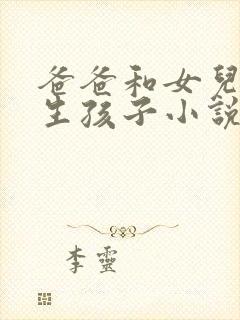 爸爸和女兒
生孩子小說
李靈